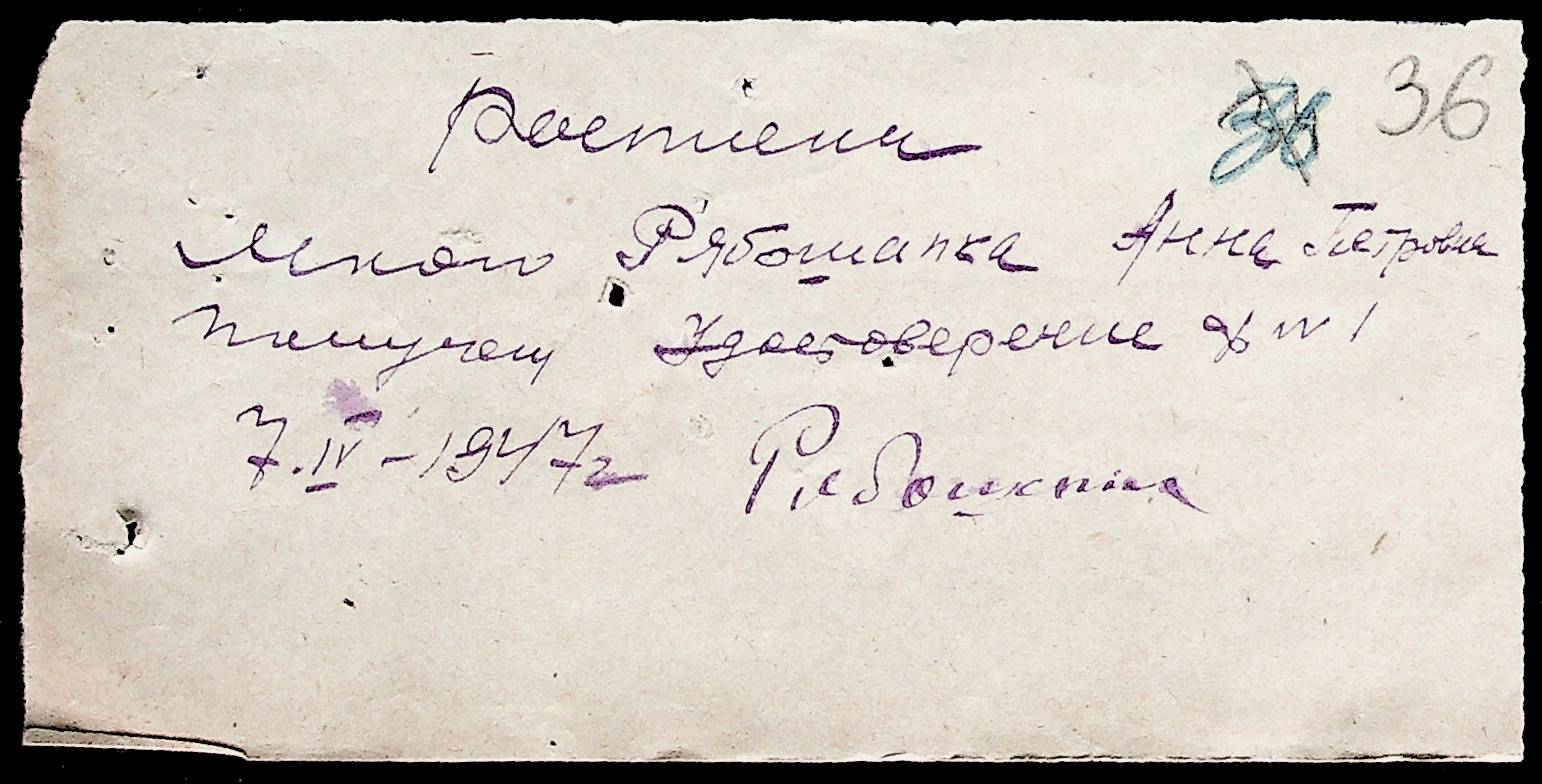 36 36
Ростиска
Мною Рябошапка Анна Петровна
получен Удостоверение № 1
7.IV-1947г Рябошапка